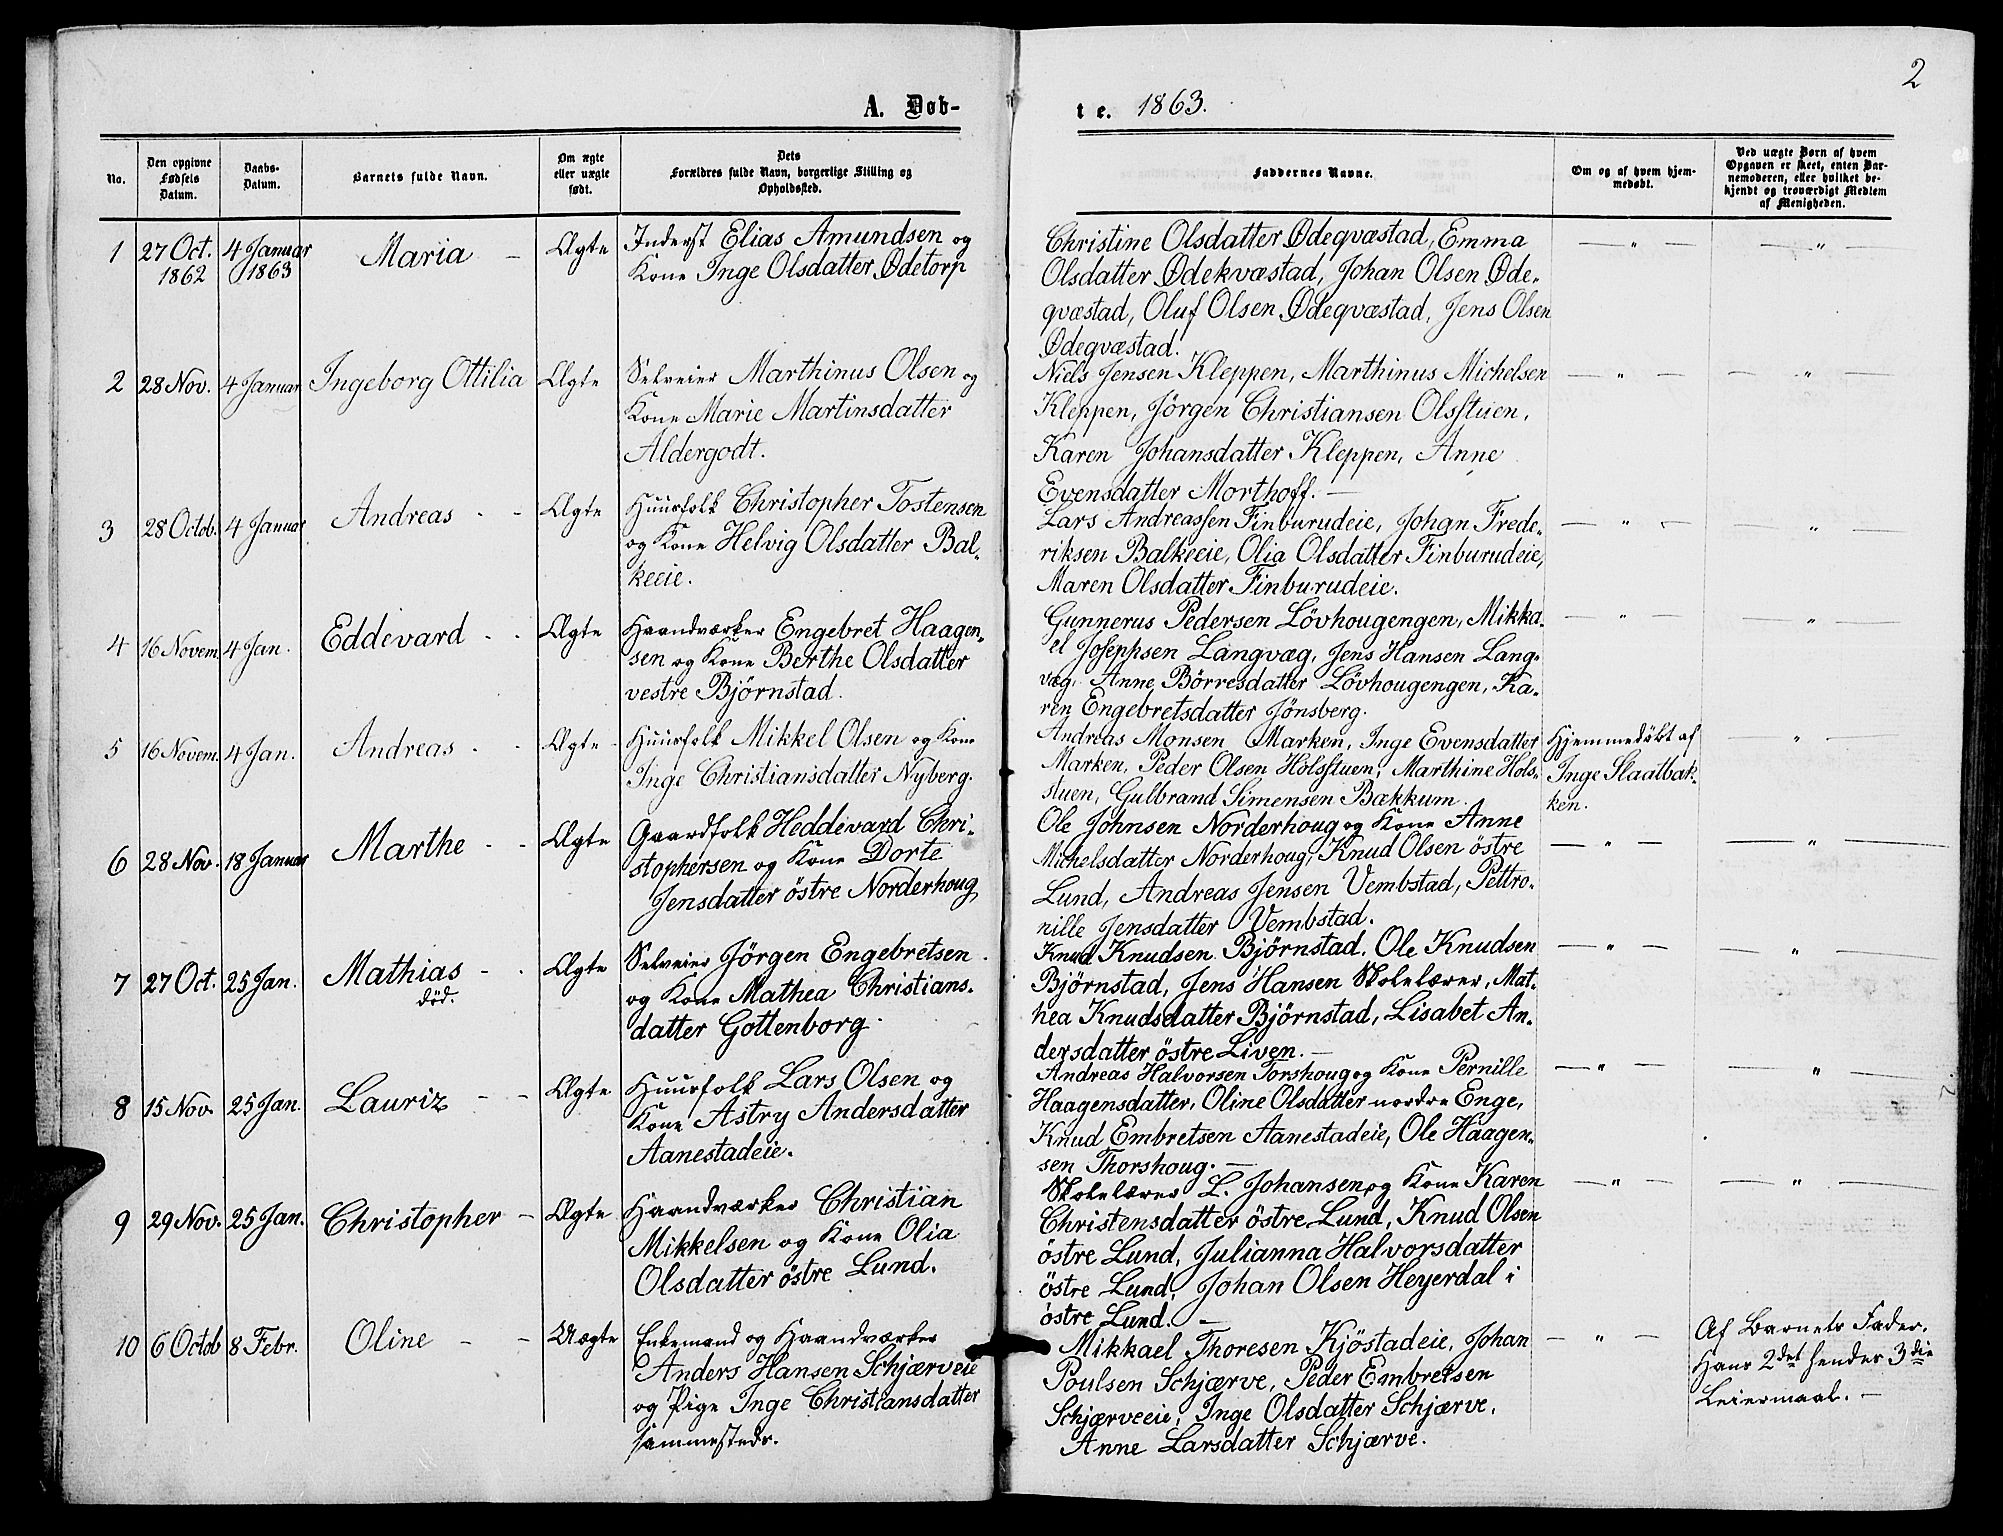 2
A. Döb-
te. 1863.
No.
Den opgivne
Fødsels
Datum.
Daabs-
Datum.
Barnets fulde Navn.
Om ægte
eller uægte
født.
Dets
Forældres fulde Navn, borgerlige Stilling og
Opholdssted.
Faddernes Navne.
Om og af hvem hjem-
medøbt.
Ved uægte Børn af hvem
Opgaven er skeet, enten Bar-
nemoderen, eller hvilket be-
kjendt og troværdigt Medlem
af Menigheden.
1 27 Oct. 4 Januar Maria - Ægte Inderst Elias Amundsen og
1862 1863 Kone Inge Olsdatter Ødetorp
Christine Olsdatter Ødeqvæstad, Emma — " — — " —
Olsdatter Ødekvæstad, Johan Olsen Øde-
qvæstad, Oluf Olsen Ødeqvæstad, Jens Olsen
Ødeqvæstad.
2 28 Nov. 4 Januar Ingeborg Ottilia Ægte Selveier Marthinus Olsen og
Kone Marie Martinsdatter
Aldergodt.
Niels Jensen Kleppen, Marthinus Michelsen — " — — " —
Kleppen, Jörgen Christiansen Olsstuen,
Karen Johansdatter Kleppen, Anne
Evensdatter Morthoff. —
3 28 Octob. 4 Januar Andreas - - Ægte Huusfolk Christopher Tostensen
og Kone Helvig Olsdatter Bal-
keeie.
Lars Andreassen Finburudeie, Johan Frede- — " — " —
riksen Balkeeie, Olia Olsdatter Finburudeie,
Maren Olsdatter Finburudeie.
4 16 Novem. 4 Jan. Eddevard - - Ægte Haandværker Engebret Haagen-
sen og Kone Berthe Olsdatter
vestre Björnstad.
Gunnerus Pedersen Lövhougengen, Mikka- — " — " —
el Josephsen Langvæg, Jens Hansen Lang-
væg, Anne Börresdatter Lövhougengen, Ka-
ren Engebretsdatter Jönsberg.
5 16 Novem. 4 Jan. Andreas - - Ægte - Huusfolk Mikkel Olsen og Kone
Inge Christiansdatter Nyberg.
Andreas Monsen Marken, Inge Evensdatter Hjemmedöbt af — " —
Marken, Peder Olsen Holsstuen, Marthine Hols- Inge Slaatbak-
stuen, Gulbrand Simensen Bækkum. ken.
6 28 Nov. 18 Januar Marthe - - Ægte Gaardfolk Heddevard Chri-
stophersen og Kone Dorte
Jensdatter östre Norderhoug
Ole Johnsen Norderhoug og Kone Anne
Michelsdatter Norderhoug, Knud Olsen östre — " — — " —
Lund, Andreas Jensen Vembstad, Pettro-
nille Jensdatter Vembstad.
7 27 Oct. 25 Jan. Mathias - - Ægte Selveier Jörgen Engebretsen
död. og Kone Mathea Christians-
datter Gottenborg.
Knud Knudsen Björnstad, Ole Knudsen — " — — " —
Björnstad, Jens Hansen Skolelærer, Mat-
hea Knudsdatter Björnstad, Lisabet An-
dersdatter östre Liven. —
8 15 Nov. 25 Jan. Lauriz - - Ægte Huusfolk Lars Olsen og
Kone Astry Andersdatter
Aanestadeie.
Andreas Halvorsen Torshoug og Kone Pernille — " — — " —
Haagensdatter, Oline Olsdatter nordre Enge,
Knud Embretsen Aanestadeie, Ole Haagen-
sen Thorshoug. —
9 29 Nov. 25 Jan. Christopher - Ægte Haandværker Christian
Mikkelsen og Kone Olia
Olsdatter östre Lund.
Skolelærer L. Johansen og Kone Karen — " — — " —
Christensdatter östre Lund, Knud Olsen
östre Lund, Julianna Halvorsdatter
östre Lund, Johan Olsen Heyerdal i
östre Lund. —
10 6 Octob 8 Febr. Oline - - Uægte Enkemand og Haandværker
Anders Hansen Schjærveie
og Pige Inge Christiansdatter
sammesteds.
Mikkael Thoresen Kjöstadeie, Johan — " — Af Barnets Fader.
Poulsen Schjærve, Peder Embretsen Hans 2det hendes 3die
Schjærveeie, Inge Olsdatter Schjærve, Leiermaal. —
Anne Larsdatter Schjærve.